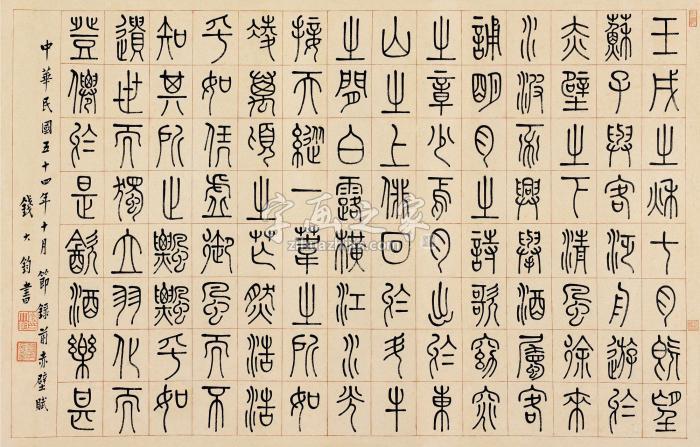 壬戌之秋七月既望
蘇子與客泛舟遊於
赤壁之下清風徐來
水波不興舉酒屬客
誦明月之詩歌窈窕
之章少焉月出於東
山之上俳回於斗牛
之間白露橫江水光
接天縱一葦之所如
凌萬頃之茫然浩浩
乎如凭虛御風而不
知其所止飄飄乎如
遺世而獨立羽化而
登僊於是飲酒樂甚
中華民國五十四年十月節錄前赤壁賦
錢大鈞書
字画之家